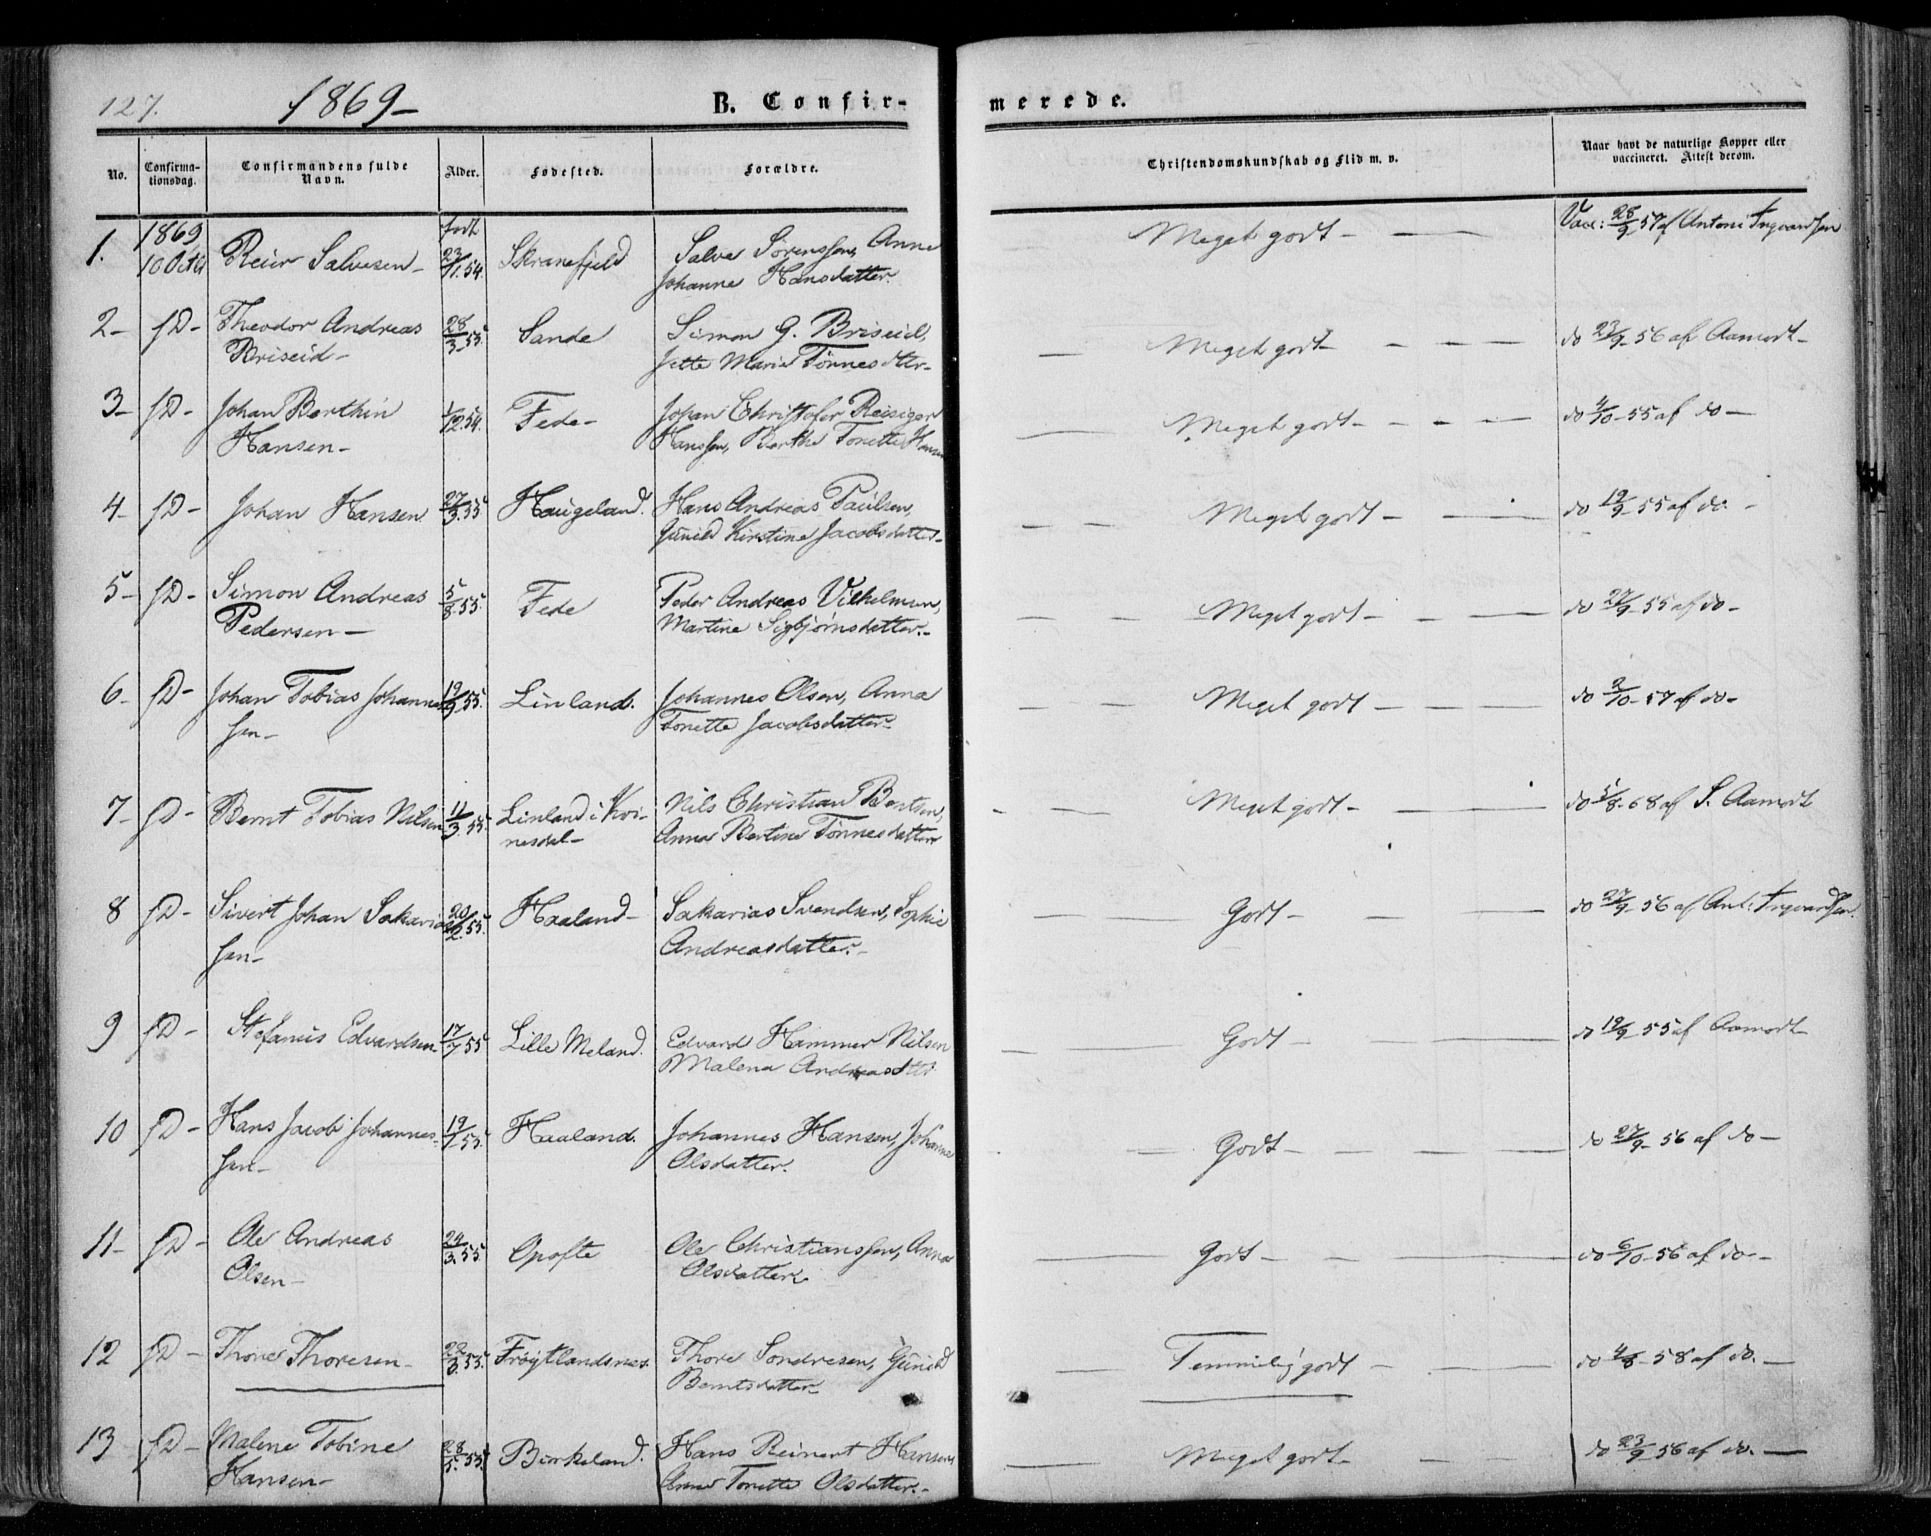 127. 1869- B. Confir- merede.
No. Confirma-tionsdag. Confirmandens fulde Navn. Alder. Fødested. Forældre. Christendomskundskab og Flid m. v. Naar havt de naturlige Kopper eller vaccineret. Attest derom.
1. 1869 10 Octbr Reier Salvesen- født 23/11.54. Skranefjeld Salve Sørenssen, Anne Johanne Hansdatter. Meget godt - Vacc: 28/9-57 af Antoni Ingvardsen
2- D- Theodor Andreas Briseid- 28/3-55 Sande Simon G. Briseid, Jette Marie Tønnesdtter- Meget godt- do 23/9-56 af Aamodt-
3- D- Johan Berthin Hansen- 1/12.54. Fede- Johan Christofer Reisiger Hanssen, Berthe Tonette Hansen Meget godt- do 4/10-55 af do-
4- D- Johan Hansen 27/3.55 Haugeland. Hans Andreas Paulsen, Gunild Kirstine Jacobsdatter- Meget godt- do 19/9-55 af do. -
5- D- Simon Andreas Pedersen- 5/8.55. Fede Peder Andreas Vilhelmsen, Martine Sigbjørnsdatter.- Meget godt- do 27/9-55 af do-
6- D- Johan Tobias Johannessen- 19/9.55. Linland. Johannes Olsen, Anna Tonette Jacobsdatter- Meget godt- do 2/10-57 af do-
7- D- Bernt Tobias Nilsen 11/3.55. Linland i Kvinesdal- Nils Christian Bentsen, Anna Bertine Tønnesdatter Meget godt- do 5/8-68 af S. Aamodt
8 D- Sivert Johan Sakariassen- 20/2.55. Haaland- Sakarias Svendsen, Sophie Andreasdatter.- Godt- do 27/9-56 af Ant: Ingvardsen.
9 D- Stefanus Edvardsen- 17/7 55 Lille Meland. Edvard Hammer Nilsen Malena Andreasdtter Godt- do 19/9-55 af Aamodt-
10 D- Hans Jacob Johannes-sen- 19/1-55. Haaland. Johannes Hansen, Johanne Olsdatter. Godt- do 27/9-56 af do-
11- D- Ole Andreas Olsen- 24/3.55. Opofte Ole Christianssen, Anna Olsdatter. Godt- do 6/10-56 af do.-
12 D- Thore Thoresen- 22/3.55. Frøytlandsnes. Thore Sondresen, Gunild Berntsdatter- Temmelig godt- do 4/8-58 af do. -
13 D- Malene Tobine Hansen- 28/5.55. Birkeland. Hans Reinert Hansen, Anne Tonette Olsdatter.- Meget godt- do 23/9-56 af do. -